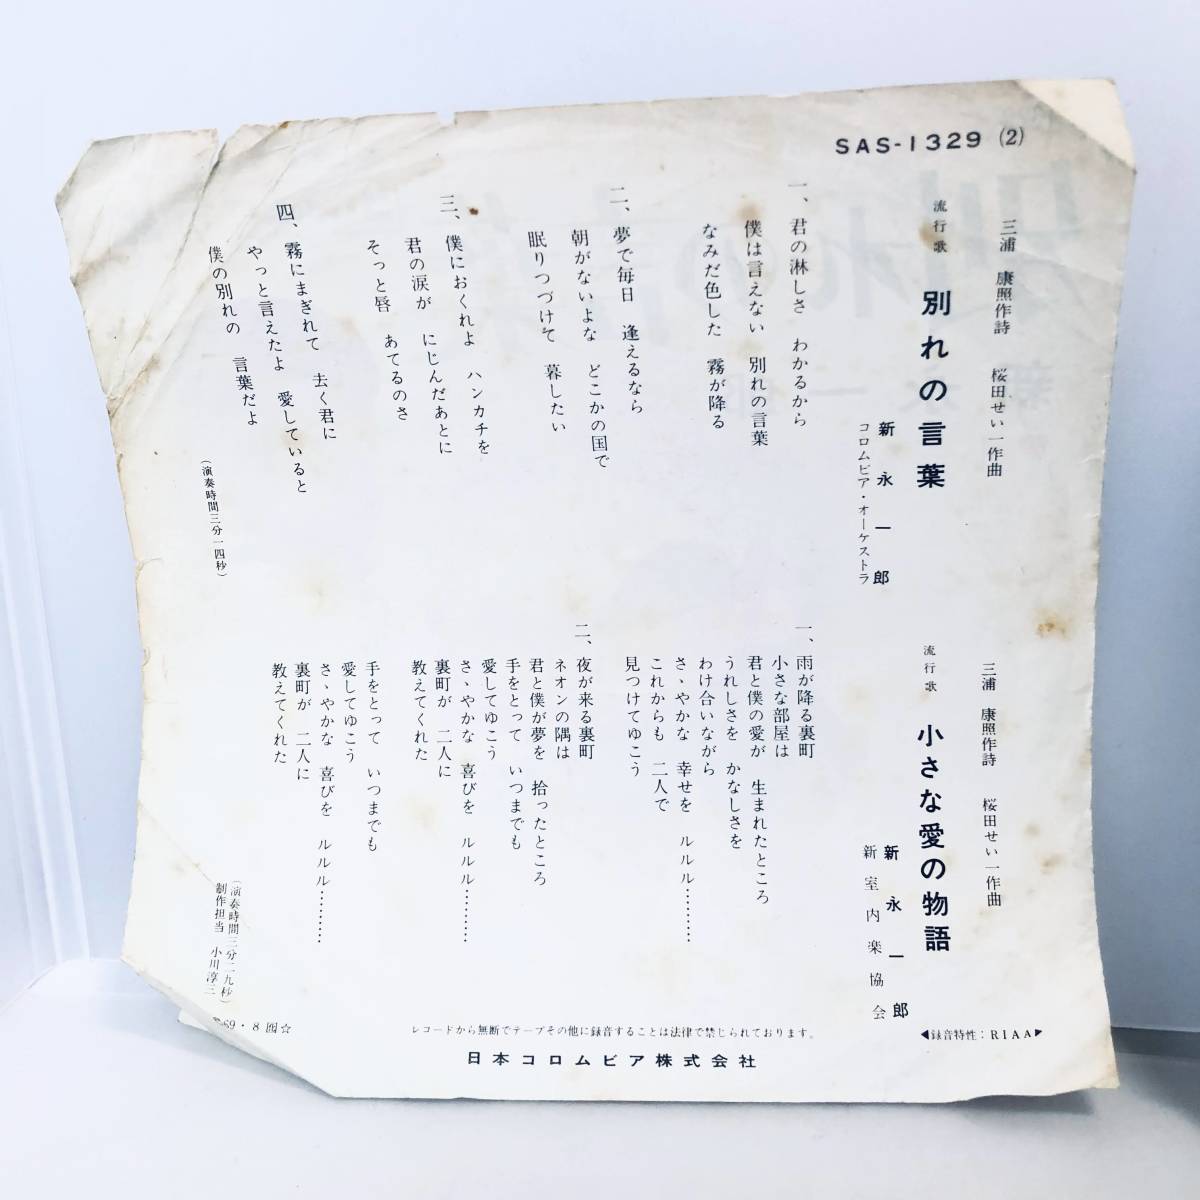 SAS-1329 (2)
三浦 康照作詩 桜田せい一作曲
流行歌 別れの言葉
新永一郎
コロムビア・オーケストラ
一、君の淋しさ わかるから
僕は言えない 別れの言葉
なみだ色した 霧が降る
二、夢で毎日 逢えるなら
朝がないよな どこかの国で
眠りつづけて 暮したい
三、僕におくれよ ハンカチを
君の涙が にじんだあとに
そっと唇 あてるのさ
四、霧にまぎれて 去く君に
やっと言えたよ 愛していると
僕の別れの 言葉だよ
(演奏時間三分一四秒)
三浦 康照作詩 桜田せい一作曲
流行歌 小さな愛の物語
新永一郎
新室内楽協会
一、雨が降る裏町
小さな部屋は
君と僕の愛が 生まれたところ
うれしさを かなしさを
わけ合いながら
さゝやかな 幸せを ルルル………
これからも 二人で
見つけてゆこう
二、夜が来る裏町
ネオンの隅は
君と僕が夢を 拾ったところ
手をとって いつまでも
愛してゆこう
さゝやかな 喜びを ルルル………
裏町が 二人に
教えてくれた
手をとって いつまでも
愛してゆこう
さゝやかな 喜びを ルルル………
裏町が 二人に
教えてくれた
(演奏時間三分二九秒)
制作担当 小川淳三
69・8 ☆
レコードから無断でテープその他に録音することは法律で禁じられております。
◀録音特性：RIAA▶
日本コロムビア株式会社